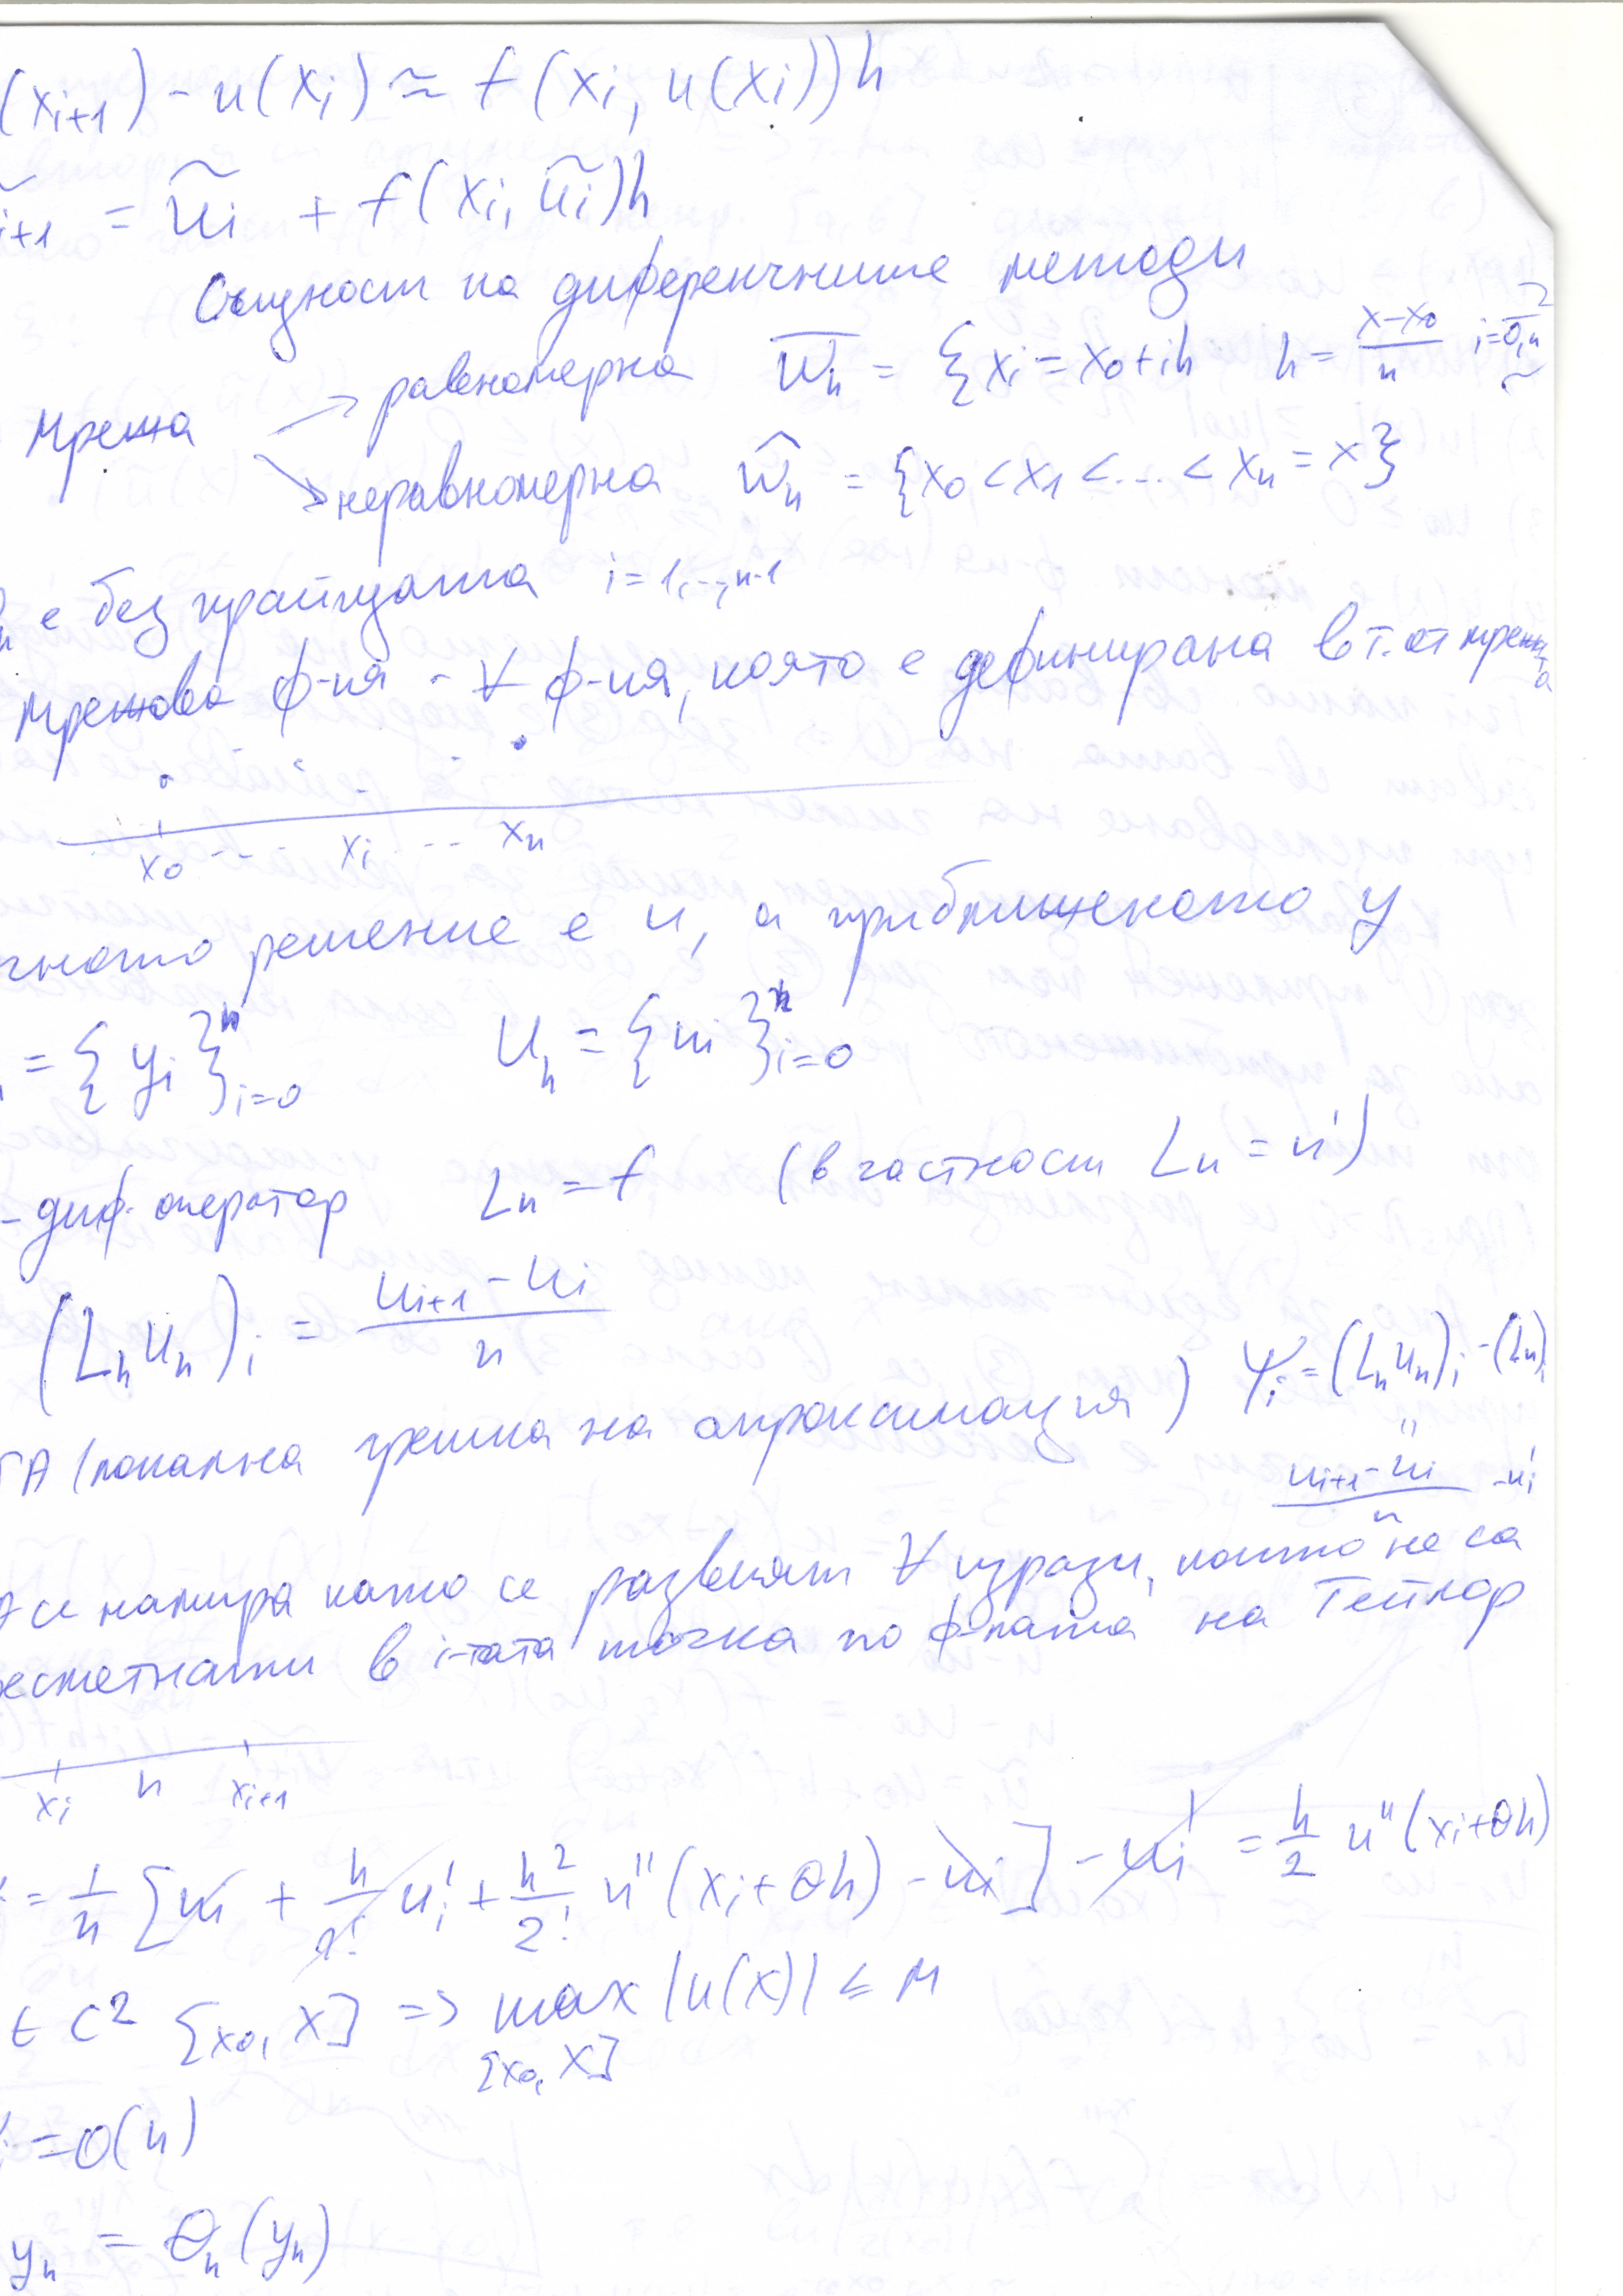 (x_{i+1}) - u(x_i) ≈ f(x_i, u(x_i))h
_{i+1} = ũ_i + f(x_i, ũ_i)h
Същност на диференчните методи
Мрежа
равномерна \overline{w}_h = { x_i = x_0 + ih h = \frac{X - x_0}{n} i = \overline{0,n} }
неравномерна \hat{w}_n = {x_0 < x_1 < ... < x_n = X}
е без крайщата i = 1, ..., n-1
Мрежова ф-ия - ∀ ф-ия, която е дефинирана в т. от мрежата
x_0 - - - x_i ... -- x_n
чното решение е u, а приближеното y
= {y_i}_{i=0}^n U_h = {u_i}_{i=0}^n
- диф. оператор Lu = f (в частност Lu = u')
(L_h u_h)_i = \frac{u_{i+1} - u_i}{h}
ГА (локална грешка на апроксимация) ψ_i = (L_h u_h)_i - (Lu)_i
" \frac{u_{i+1} - u_i}{h} - u_i'
се намира като се развият ∀ изрази, които не са
пресметнати в i-тата точка по ф-лата на Тейлор
x_i h x_{i+1}
= \frac{1}{h} [u_i + \frac{h}{1!} u_i' + \frac{h^2}{2!} u''(x_i + θh) - u_i] - u_i' = \frac{h}{2} u''(x_i + θh)
∈ C^2 [x_0, X] => max |u(x)| ≤ M
[x_0, X]
= O(h)
y_h = θ_h(y_h)